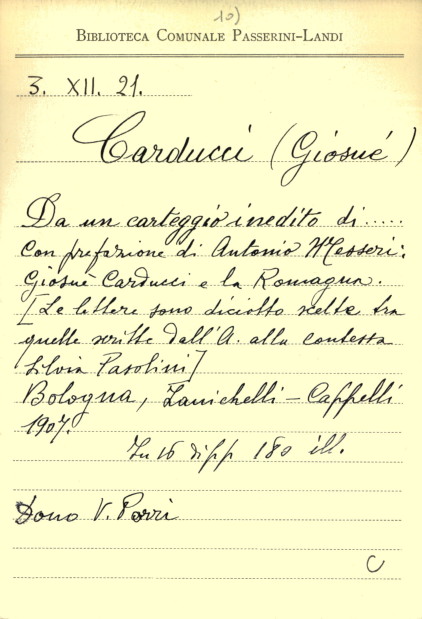 10)
BIBLIOTECA COMUNALE PASSERINI-LANDI
3. XII. 21.
Carducci (Giosué)
Da un carteggio inedito di.....
con prefazione di Antonio Messeri:
Giosué Carducci e la Romagna.
[Le lettere sono diciotto scelte tra
quelle scritte dall'A. alla contessa
Silvia Pasolini]
Bologna, Zanichelli - Cappelli
1907.
In 16 di pp 180 ill.
Dono V.
C